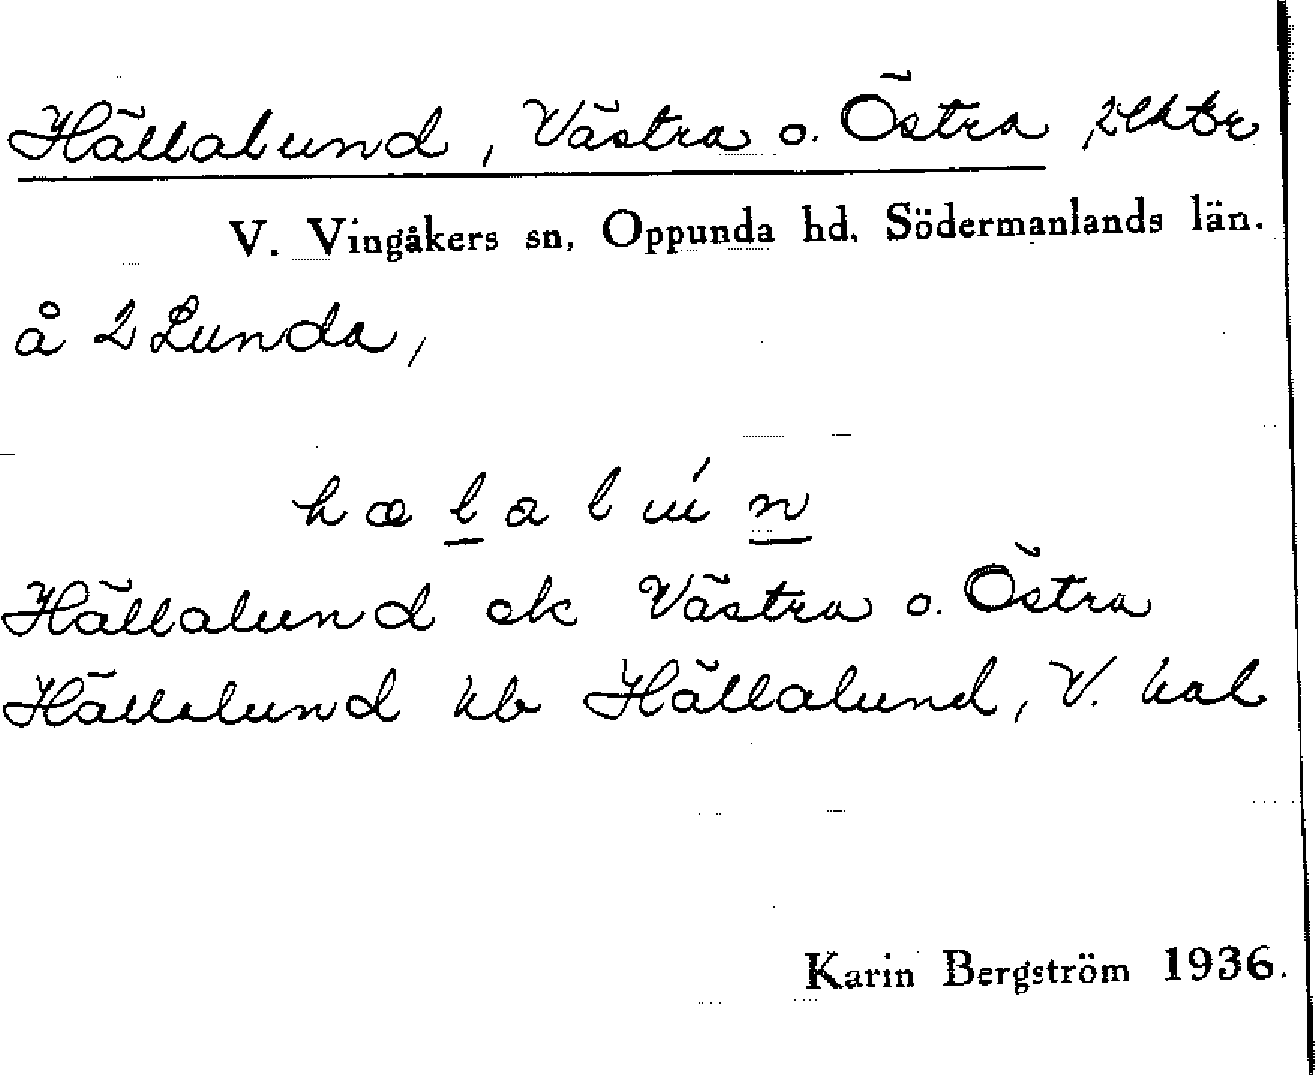 Hällalund, Västra o. Östra
V. Vingåkers sn, Oppunda hd, Södermanlands län.
å 2 Lunda,
hæḻalúṉ
Hällalund ek Västra o. Östra
Hällalund kb Hällalund, V. hal
Karin Bergström 1936.